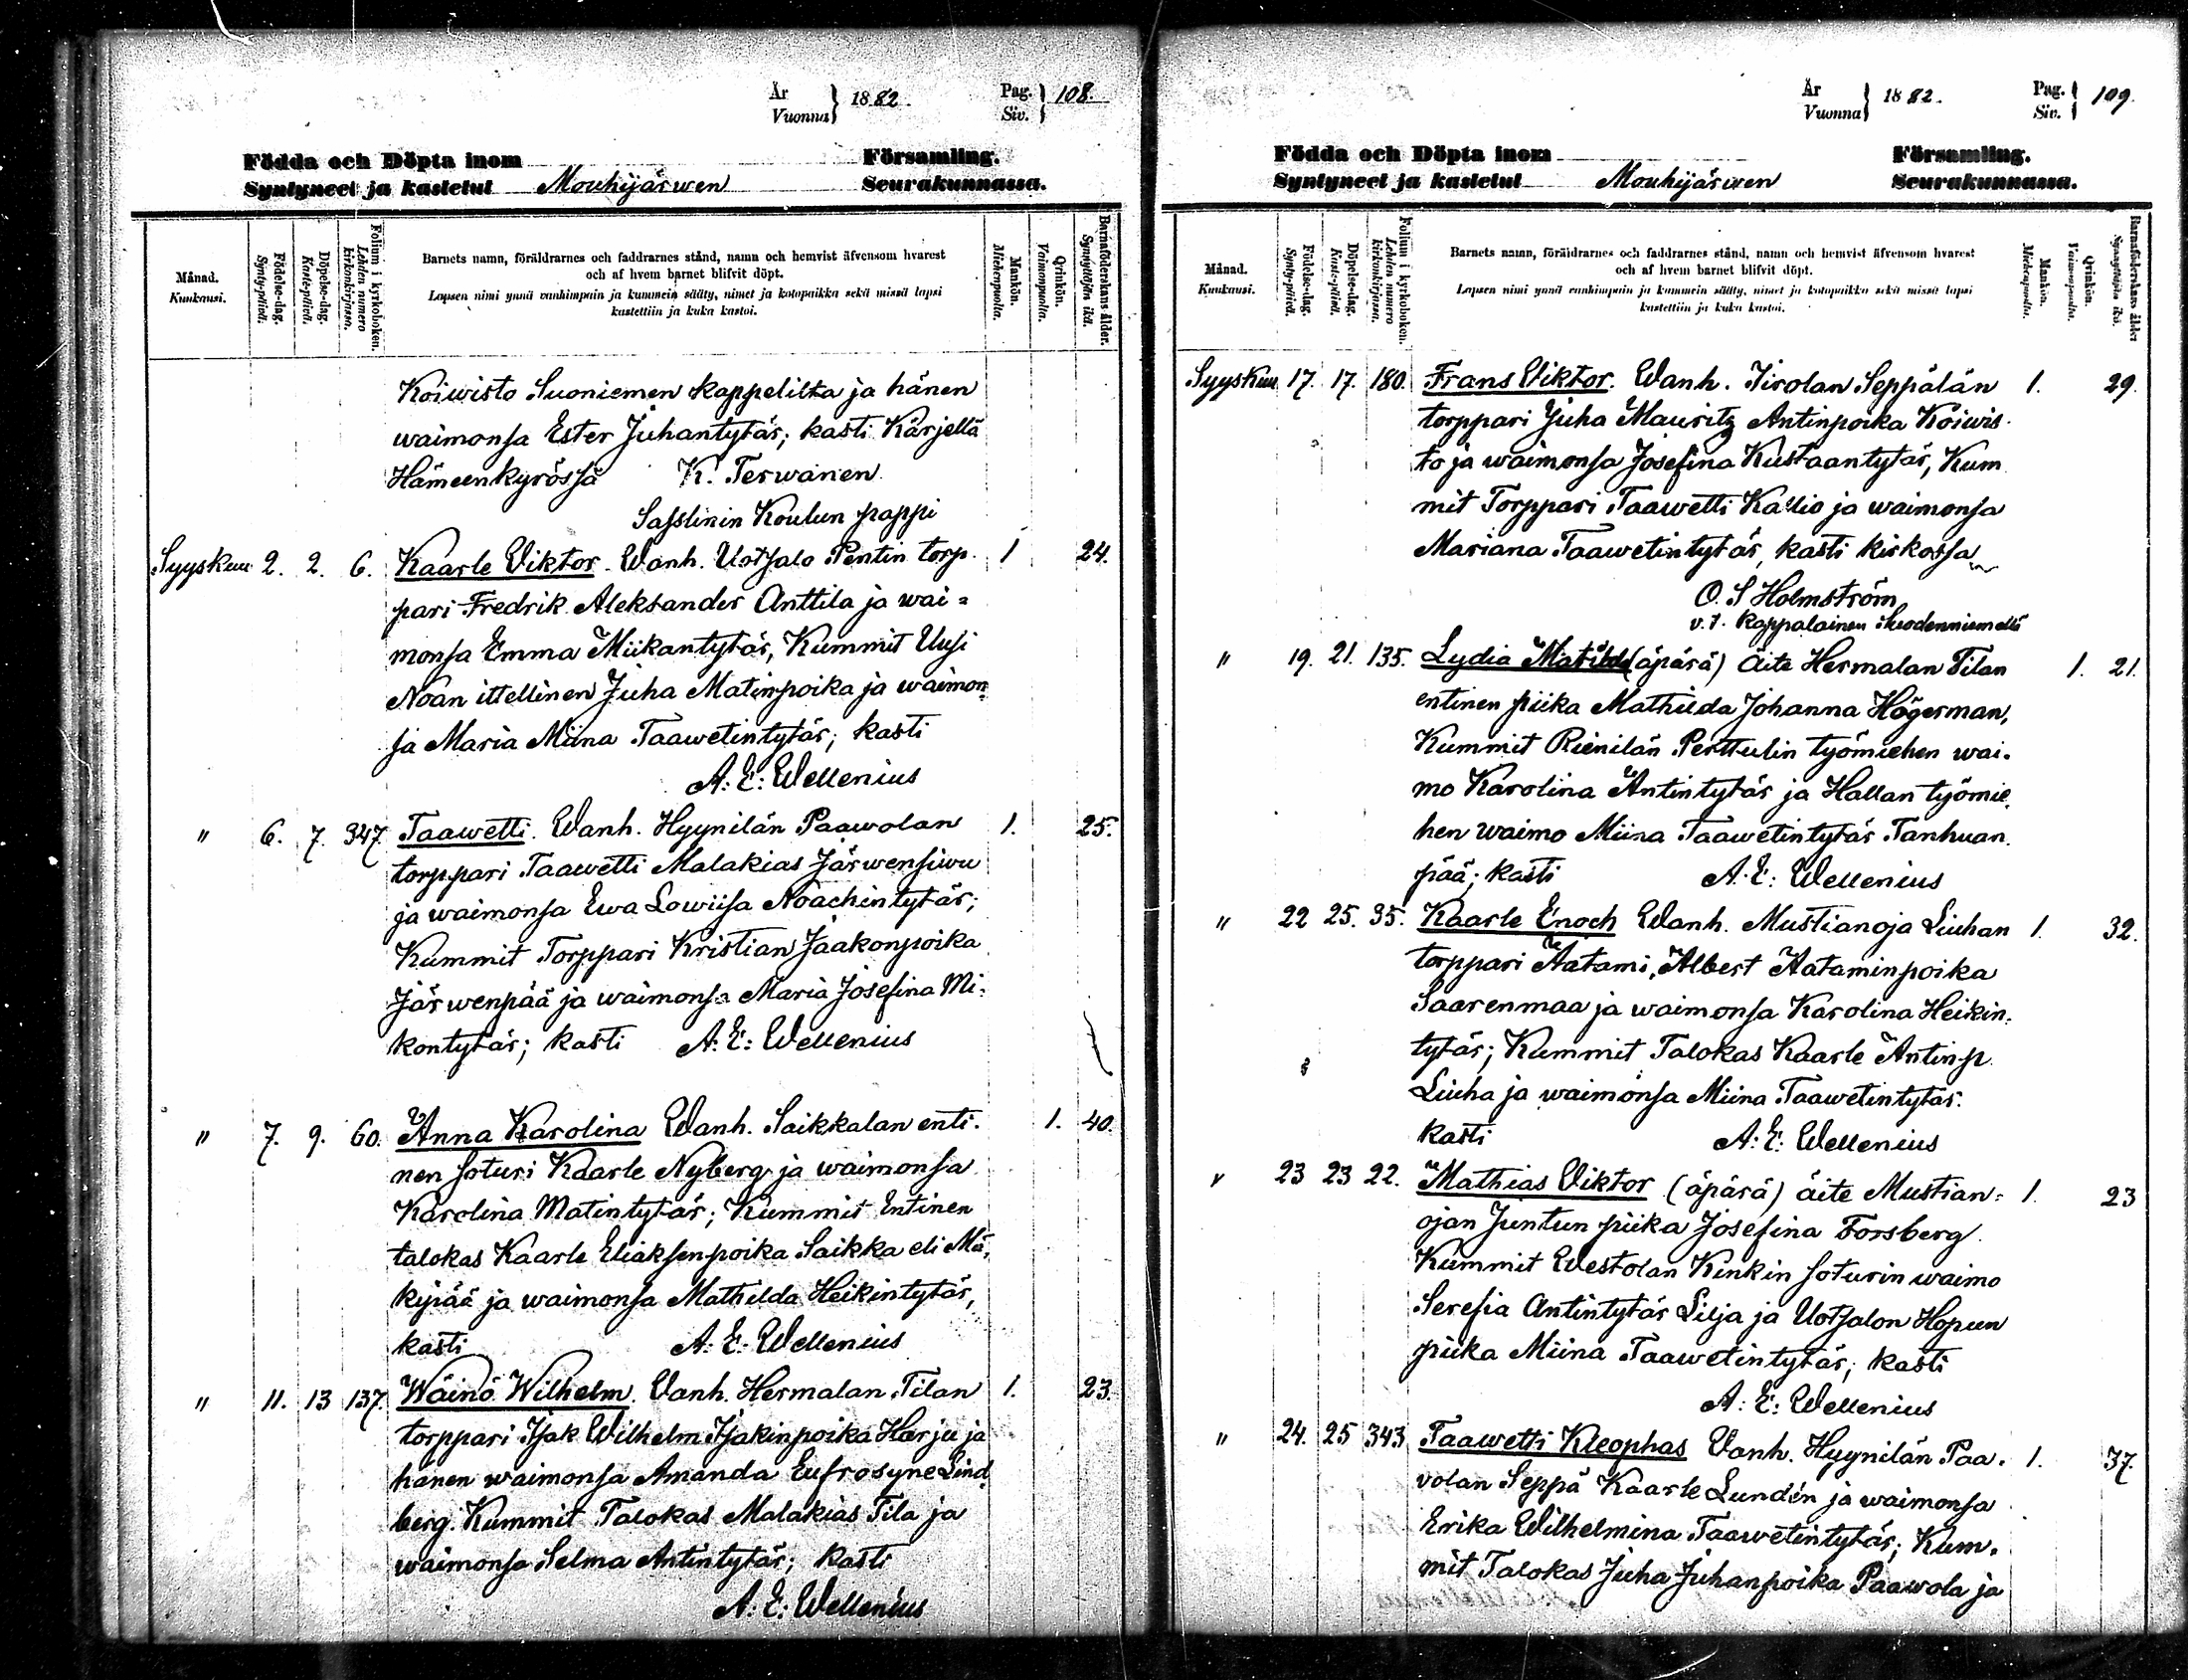 År
Vuonna } 1882.
Pag.
Siv. } 108.
Födda och Döpta inom Församling.
Syntyneet ja kastetut Mouhijärwen Seurakunnassa.
Månad.
Kuukausi.
Födelse-dag.
Synty-päivä.
Döpelse-dag.
Kaste-päivä.
Folium i kyrkoboken.
Lehden numero kirkonkirjassa.
Barnets namn, föräldrarnes och faddrarnes stånd, namn och hemvist äfvensom hvarest
och af hvem barnet blifvit döpt.
Lapsen nimi ynnä vanhimpain ja kummein sääty, nimet ja kotopaikka sekä missä lapsi
kastettiin ja kuka kastoi.
Mankön.
Miehenpuolia.
Qvinkön.
Vaimonpuolia.
Barnaföderskans ålder.
Synnyttäjän ikä.
Koiwisto Suoniemen kappelilta ja hänen
waimonsa Ester Juhantytär; kasti Kärjellä
Hämeenkyrössä K. Terwanen
Sasslinin Koulun pappi
Syyskuu 2. 2. 6. Kaarle Viktor. Wanh. Uotsalo Pentin torp- 1 24.
pari Fredrik Aleksander Anttila ja wai=
monsa Emma Miikantytär, Kummit Uusi
Noan ittellinen Juha Matinpoika ja waimon
sa Maria Miina Taawetintytär; kasti
A: E: Wellenius
" 6. 7. 347. Taawetti. Wanh. Hyynilän Paawolan 1. 25.
torppari Taawetti Malakias Järwensiwu
ja waimonsa Ewa Lowiisa Noachintytär;
Kummit Torppari Kristian Jaakonpoika
Järwenpää ja waimonsa Maria Josefina Mi-
kontytär; kasti A: E: Wellenius
" 7. 9. 60. Anna Karolina Wanh. Saikkalan enti- 1. 40.
nen soturi Kaarle Nyberg ja waimonsa
Karolina Matintytär; Kummit Entinen
talokas Kaarle Eliaksenpoika Saikka eli Mä-
kipää ja waimonsa Mathilda Heikintytär,
kasti A: E: Wellenius
" 11. 13 137. Wäinö Wilhelm. Vanh. Hermalan Tilan 1. 23.
torppari Isak Wilhelm Isakinpoika Harju ja
hänen waimonsa Amanda Eufrosyne Lind
berg. Kummit Talokas Malakias Tila ja
waimonsa Selma Antintytär; kasti
A: E: Wellenius
År
Vuonna } 1882.
Pag.
Siv. } 109.
Födda och Döpta inom Församling.
Syntyneet ja kastetut Mouhijärwen Seurakunnassa.
Månad.
Kuukausi.
Födelse-dag.
Synty-päivä.
Döpelse-dag.
Kaste-päivä.
Folium i kyrkoboken.
Lehden numero kirkonkirjassa.
Barnets namn, föräldrarnes och faddrarnes stånd, namn och hemvist äfvensom hvarest
och af hvem barnet blifvit döpt.
Lapsen nimi ynnä vanhimpain ja kummein sääty, nimet ja kotopaikka sekä missä lapsi
kastettiin ja kuka kastoi.
Mankön.
Miehenpuolia.
Qvinkön.
Vaimonpuolia.
Barnaföderskans ålder
Synnyttäjän ikä.
Syyskuu 17. 17. 180. Frans Viktor. Wanh. Iirolan Seppälän 1. 29.
torppari Juha Mauritz Antinpoika Koiwis-
to ja waimonsa Josefina Kustaantytär, Kum
mit Torppari Taawetti Kallio ja waimonsa
Mariana Taawetintytär, kasti kirkossa
O. S Holmström
v. t. Kappalainen Suodenniemellä
" 19. 21. 135. Lydia Matilda (äpärä) äite Hermalan Tilan 1. 21.
entinen piika Mathilda Johanna Högerman,
Kummit Rienilän Perttulin työmiehen wai-
mo Karolina Antintytär ja Hallan työmie
hen waimo Miina Taawetintytär Tanhuan
pää; kasti A. E: Wellenius
" 22 25. 35. Kaarle Enoch Wanh. Mustianoja Liuhan 1. 32.
torppari Aatami Albert Aataminpoika
Saarenmaa ja waimonsa Karolina Heikin-
tytär; Kummit Talokas Kaarle Antinp.
Liuha ja waimonsa Miina Taawetintytär.
kasti A: E: Wellenius
" 23 23 22. Mathias Viktor (äpärä) äite Mustian- 1. 23
ojan Juntun piika Josefina Forsberg.
Kummit Westolan Kinkin soturin waimo
Serefia Antintytär Lilja ja Uotsalon Hopun
piika Miina Taawetintytär; kasti
A: E: Wellenius
" 24. 25 343 Taawetti Kleophas Vanh. Hyynilän Paa- 1. 37.
volan Seppä Kaarle Lundén ja waimonsa
Erika Wilhelmina Taawetintytär; Kum-
mit Talokas Juha Juhanpoika Paawola ja